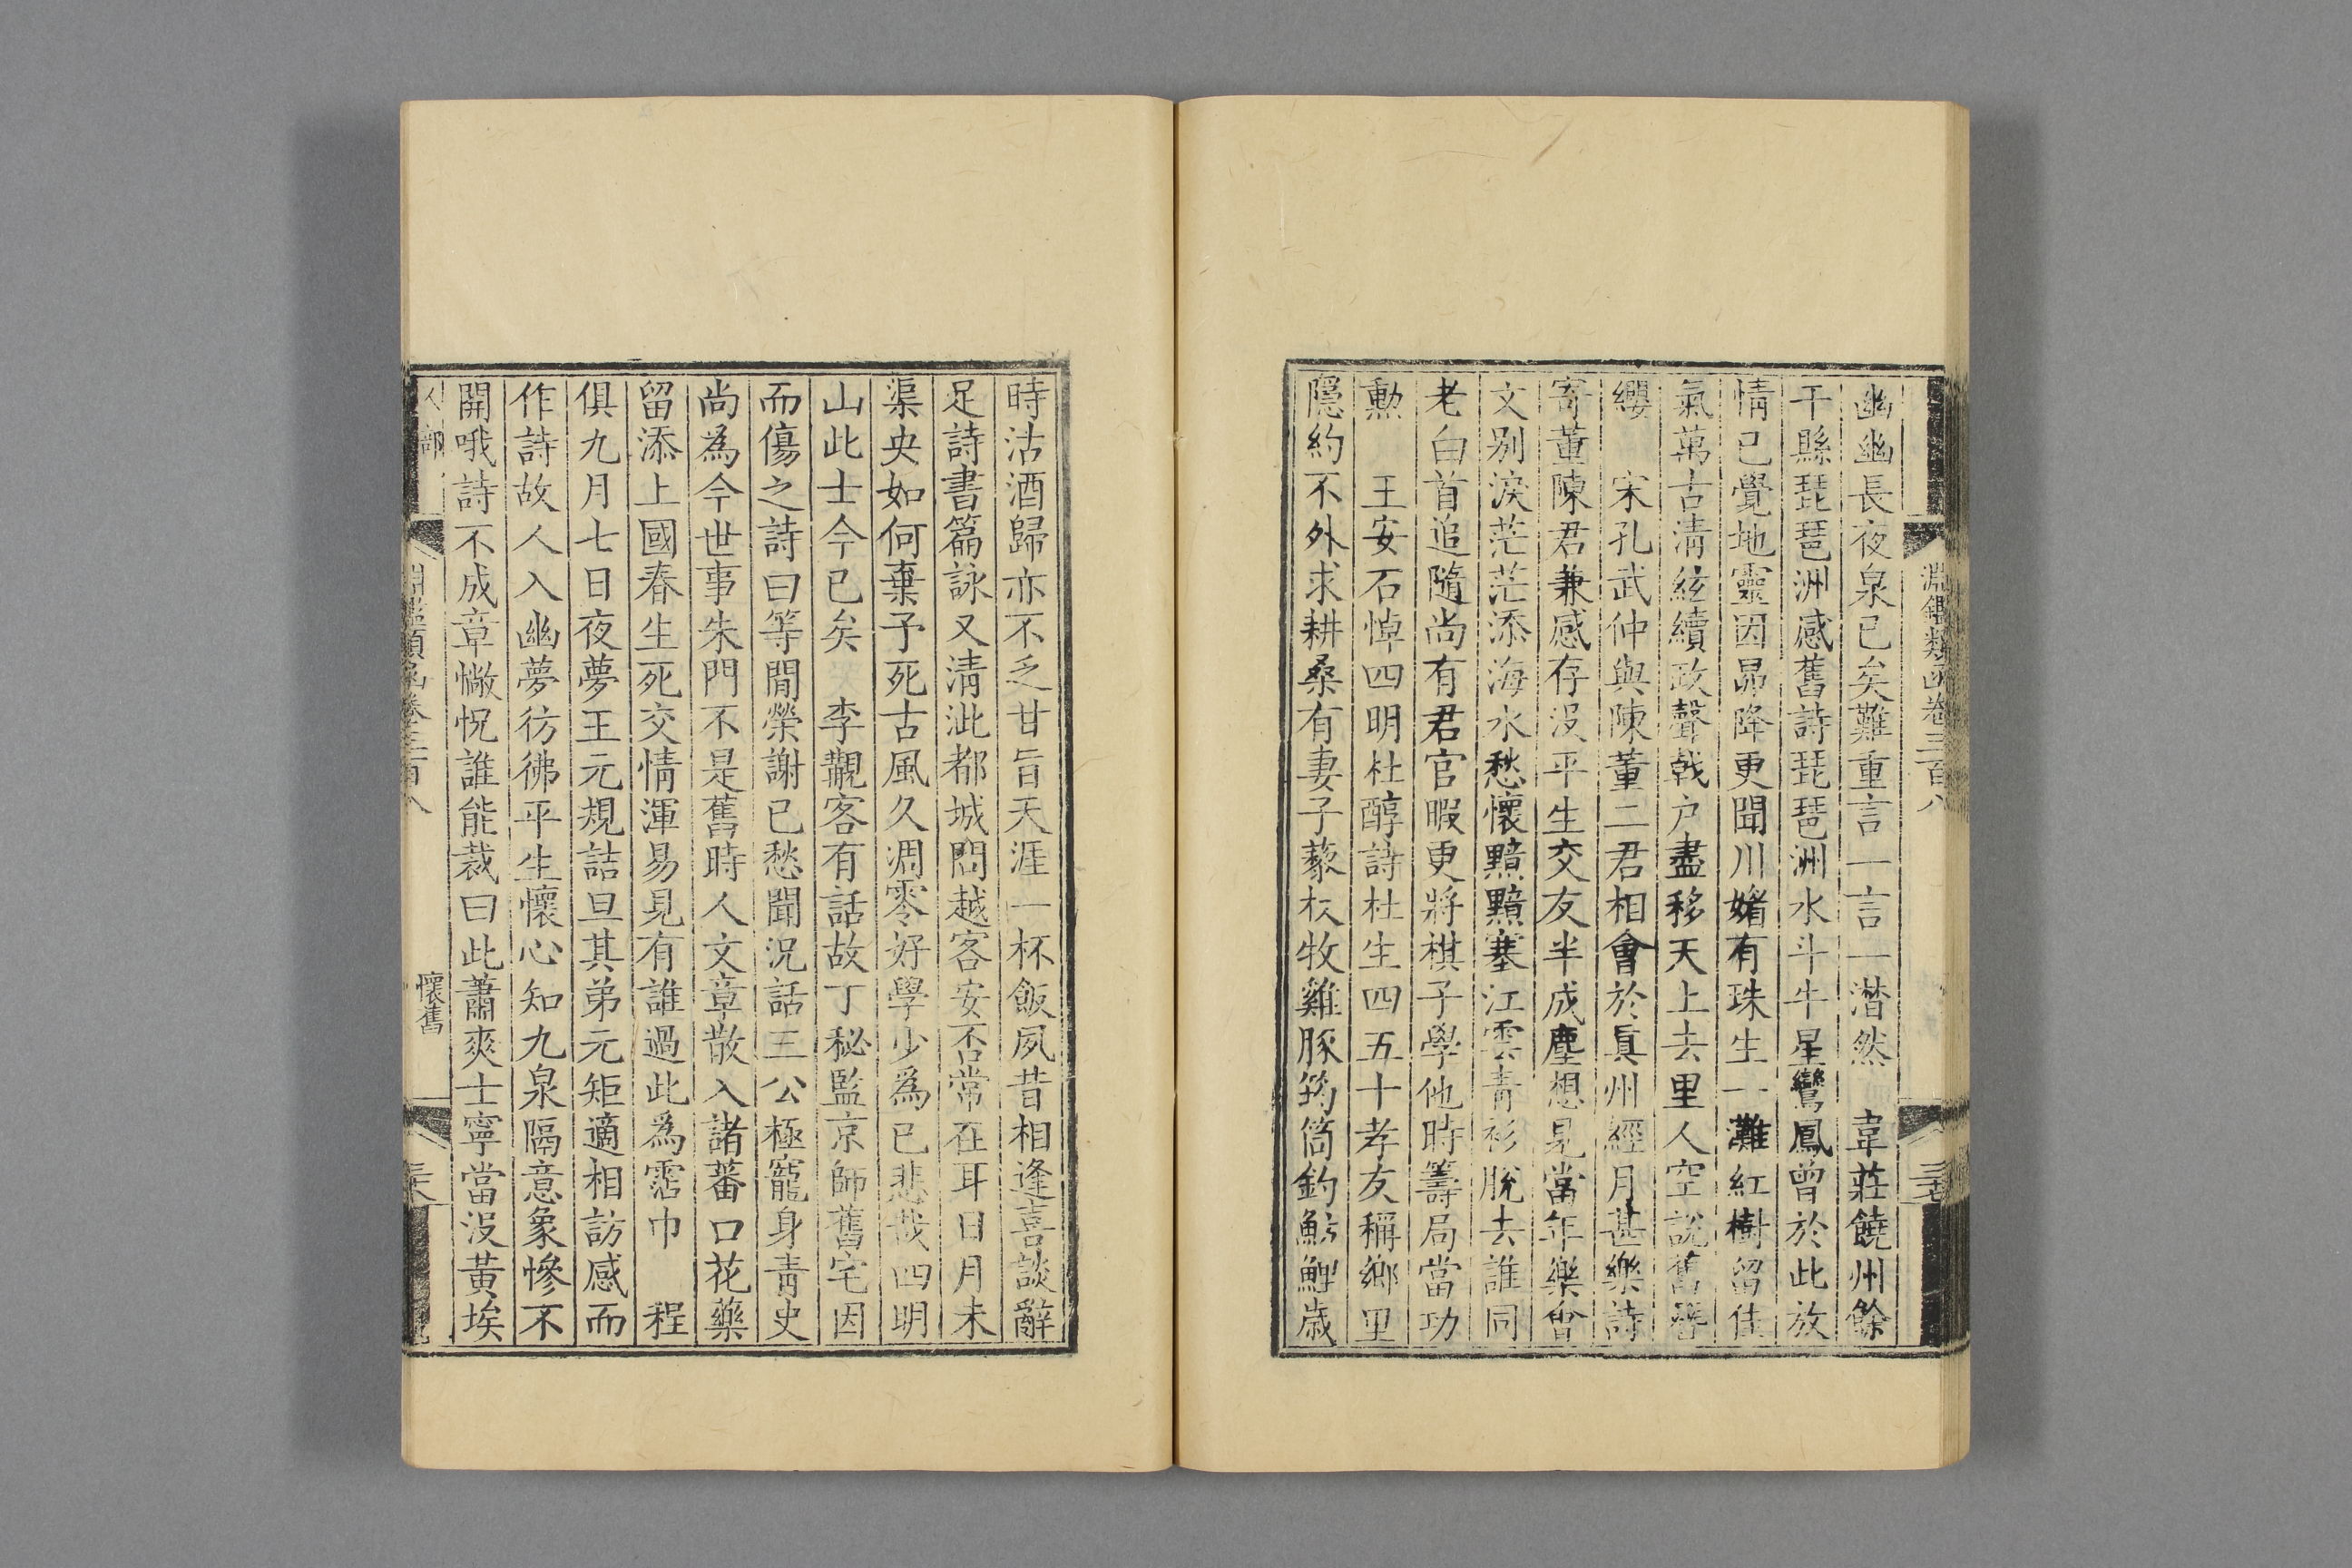 淵鑑類函卷三百八
幽幽長夜泉已矣難重言一言一潸然　韋莊饒州餘
干縣琵琶洲感舊詩琵琶洲水斗牛星鸞鳳曾於此放
情已覺地靈因昴降更聞川媚有珠生一灘紅樹留佳
氣萬古清絃續政聲戟户盡移天上去里人空說舊簪
纓　宋孔武仲與陳董二君相會於真州經月甚樂詩
寄董陳君兼感存没平生交友半成塵想見當年樂會
文别淚茫茫添海水愁懷黯黯塞江雲青衫脫去誰同
老白首追隨尚有君官暇更將棋子學他時籌局當功
勲　王安石悼四明杜醇詩杜生四五十孝友稱鄉里
隱約不外求耕桑有妻子藜杖牧雞豚筠筒釣魴鯉歲
時沽酒歸亦不乏甘旨天涯一杯飯夙昔相逢喜談辭
足詩書篇詠又清泚都城問越客安否常在耳日月未
渠央如何棄予死古風久凋零好學少爲己悲哉四明
山此士今已矣　李覯客有話故丁秘監京師舊宅因
而傷之詩曰等閒榮謝已愁聞況話三公極寵身青史
尚為今世事朱門不是舊時人文章散入諸蕃口花藥
留添上國春生死交情渾易見有誰過此為霑巾　程
俱九月七日夜夢王元規詰旦其弟元矩適相訪感而
作詩故人入幽夢彷彿平生懷心知九泉隔意象慘不
開哦詩不成章懒怳誰能裁曰此蕭爽士寧當没黃埃
淵鑑類函卷三百八
懷舊